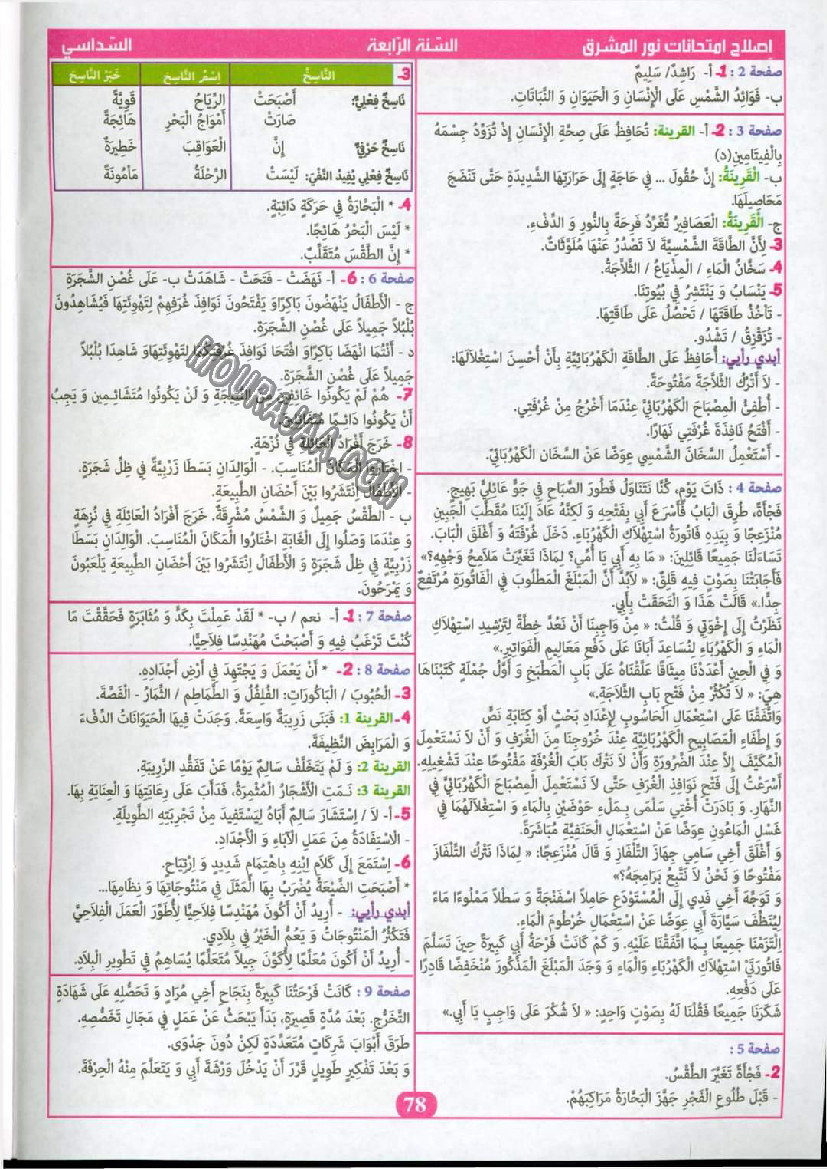 إصلاح امتحانات نور المشرق
السّنة الرّابعة
السّداسي
صفحة 2 : 1- أ- رَاشِدٌ/ سَلِيمٌ
ب- فَوَائِدُ الشَّمْسِ عَلَى الْإِنْسَانِ وَ الْحَيَوَانِ وَ النَّبَاتَاتِ.
صفحة 3 : 2- أ- القرينة: تُحَافِظُ عَلَى صِحَّةِ الْإِنْسَانِ إِذْ تُزَوِّدُ جِسْمَهُ
بِالْفِيتَامِينِ(د)
ب- الْقَرِينَةُ: إِنَّ حُقُولَ ... فِي حَاجَةٍ إِلَى حَرَارَتِهَا الشَّدِيدَةِ حَتَّى تَنْضَجَ
مَحَاصِيلُهَا.
ج- الْقَرِينَةُ: الْعَصَافِيرُ تُغَرِّدُ فَرِحَةً بِالنُّورِ وَ الدِّفْءِ.
3- لِأَنَّ الطَّاقَةَ الشَّمْسِيَّةَ لَا تَصْدُرُ عَنْهَا مُلَوِّثَاتٌ.
4- سَخَّانُ الْمَاءِ / الْمِذْيَاعُ / الثَّلَّاجَةُ.
5- يَنْسَابُ وَ يَنْتَشِرُ فِي بُيُوتِنَا.
- تَأْخُذُ طَاقَتَهَا / تَحْصُلُ عَلَى طَاقَتِهَا.
- تُزَقْزِقُ / تَشْدُو.
أبدي رأيي: أُحَافِظُ عَلَى الطَّاقَةِ الْكَهْرُبَائِيَّةِ بِأَنْ أُحْسِنَ اسْتِغْلَالَهَا:
- لَا أَتْرُكُ الثَّلَّاجَةَ مَفْتُوحَةً.
- أُطْفِئُ الْمِصْبَاحَ الْكَهْرُبَائِيَّ عِنْدَمَا أَخْرُجُ مِنْ غُرْفَتِي.
- أَفْتَحُ نَافِذَةَ غُرْفَتِي نَهَارًا.
- أَسْتَعْمِلُ السَّخَّانَ الشَّمْسِي عِوَضًا عَنْ السَّخَّانِ الْكَهْرُبَائِيِّ.
صفحة 4 : ذَاتَ يَوْمٍ، كُنَّا نَتَنَاوَلُ فَطُورَ الصَّبَاحِ فِي جَوٍّ عَائِلِيٍّ بَهِيجٍ.
فَجْأَةً، طُرِقَ الْبَابُ فَأَسْرَعَ أَبِي بِفَتْحِهِ وَ لَكِنَّهُ عَادَ إِلَيْنَا مُقَطَّبَ الْجَبِينِ
مُنْزَعِجًا وَ بِيَدِهِ فَاتُورَةُ اسْتِهْلَاكِ الْكَهْرُبَاءِ. دَخَلَ غُرْفَتَهُ وَ أَغْلَقَ الْبَابَ.
تَسَاءَلْنَا جَمِيعًا قَائِلِينَ: « مَا بِهِ أَبِي يَا أُمِّي؟ لِمَاذَا تَغَيَّرَتْ مَلَامِحُ وَجْهِهِ؟»
فَأَجَابَتْنَا بِصَوْتٍ فِيهِ قَلَقٌ: « لَابُدَّ أَنَّ الْمَبْلَغَ الْمَطْلُوبَ فِي الْفَاتُورَةِ مُرْتَفِعٌ
جِدًّا.» قَالَتْ هَذَا وَ الْتَحَقَتْ بِأَبِي.
نَظَرْتُ إِلَى إِخْوَتِي وَ قُلْتُ: « مِنْ وَاجِبِنَا أَنْ نُعِدَّ خِطَّةً لِتَرْشِيدِ اسْتِهْلَاكِ
الْمَاءِ وَ الْكَهْرُبَاءِ لِنُسَاعِدَ أَبَانَا عَلَى دَفْعِ مَعَالِيمِ الْفَوَاتِيرِ.»
وَ فِي الْحِينِ أَعْدَدْنَا مِيثَاقًا عَلَّقْنَاهُ عَلَى بَابِ الْمَطْبَخِ وَ أَوَّلُ جُمْلَةٍ كَتَبْنَاهَا
هِيَ: « لَا تُكْثِرْ مِنْ فَتْحِ بَابِ الثَّلَّاجَةِ.»
وَاتَّفَقْنَا عَلَى اسْتِعْمَالِ الْحَاسُوبِ لِإِعْدَادِ بَحْثٍ أَوْ كِتَابَةِ نَصٍّ
وَ إِطْفَاءِ الْمَصَابِيحِ الْكَهْرُبَائِيَّةِ عِنْدَ خُرُوجِنَا مِنَ الْغُرَفِ وَ أَنْ لَا نَسْتَعْمِلَ
الْمُكَيِّفَ إِلَّا عِنْدَ الضَّرُورَةِ وَأَنْ لَا نَتْرُكَ بَابَ الْغُرْفَةِ مَفْتُوحًا عِنْدَ تَشْغِيلِهِ.
أَسْرَعْتُ إِلَى فَتْحِ نَوَافِذِ الْغُرَفِ حَتَّى لَا نَسْتَعْمِلَ الْمِصْبَاحَ الْكَهْرُبَائِيَّ فِي
النَّهَارِ. وَ بَادَرَتْ أُخْتِي سَلْمَى بِمَلْءِ حَوْضَيْنِ بِالْمَاءِ وَ اسْتِغْلَالِهُمَا فِي
غَسْلِ الْمَاعُونِ عِوَضًا عَنْ اسْتِعْمَالِ الْحَنَفِيَّةِ مُبَاشَرَةً.
وَ أَغْلَقَ أَخِي سَامِي جِهَازَ التِّلْفَازِ وَ قَالَ مُنْزَعِجًا: « لِمَاذَا نَتْرُكُ التِّلْفَازَ
مَفْتُوحًا وَ نَحْنُ لَا نَتَّبِعُ بَرَامِجَهُ؟»
وَ تَوَجَّهَ أَخِي فَدِي إِلَى الْمُسْتَوْدَعِ حَامِلًا اسْفَنْجَةً وَ سَطْلًا مَمْلُوءًا مَاءً
لِيُنَظِّفَ سَيَّارَةَ أَبِي عِوَضًا عَنْ اسْتِعْمَالِ خُرْطُومِ الْمَاءِ.
اِلْتَزَمْنَا جَمِيعًا بِمَا اتَّفَقْنَا عَلَيْهِ. وَ كَمْ كَانَتْ فَرْحَةُ أَبِي كَبِيرَةً حِينَ تَسَلَّمَ
فَاتُورَتَيْ اسْتِهْلَاكِ الْكَهْرُبَاءِ وَالْمَاءِ وَ وَجَدَ الْمَبْلَغَ الْمَذْكُورَ مُنْخَفِضًا قَادِرًا
عَلَى دَفْعِهِ.
شَكَرَنَا جَمِيعًا فَقُلْنَا لَهُ بِصَوْتٍ وَاحِدٍ: « لَا شُكْرَ عَلَى وَاجِبٍ يَا أَبِي.»
صفحة 5 :
2- فَجْأَةً تَغَيَّرَ الطَّقْسُ.
- قَبْلَ طُلُوعِ الْفَجْرِ جَهَّزَ الْبَحَّارَةُ مَرَاكِبَهُمْ.
3- النَّاسِخُ اِسْمُ النَّاسِخِ خَبَرُ النَّاسِخِ
نَاسِخٌ فِعْلِيٌّ: أَصْبَحَتْ الرِّيَاحُ قَوِيَّةً
صَارَتْ أَمْوَاجُ الْبَحْرِ هَائِجَةً
نَاسِخٌ حَرْفِيٌّ: إِنَّ الْعَوَاقِبَ خَطِيرَةٌ
نَاسِخٌ فِعْلِي يُفِيدُ النَّفْيَ: لَيْسَتْ الرِّحْلَةُ مَأْمُونَةً
4- * الْبَحَّارَةُ فِي حَرَكَةٍ دَائِبَةٍ.
* لَيْسَ الْبَحْرُ هَائِجًا.
* إِنَّ الطَّقْسَ مُتَقَلِّبٌ.
صفحة 6 : 6- أ- نَهَضَتْ - فَتَحَتْ - شَاهَدَتْ ب- عَلَى غُصْنِ الشَّجَرَةِ
ج - الْأَطْفَالُ يَنْهَضُونَ بَاكِرًا وَ يَفْتَحُونَ نَوَافِذَ غُرَفِهِمْ لِتَهْوِئَتِهَا فَيُشَاهِدُونَ
بُلْبُلًا جَمِيلًا عَلَى غُصْنِ الشَّجَرَةِ.
د - أَنْتُمَا انْهَضَا بَاكِرًا وَ افْتَحَا نَوَافِذَ غُرْفَتِكُمَا لِتَهْوِئَتِهَاوَ شَاهِدَا بُلْبُلًا
جَمِيلًا عَلَى غُصْنِ الشَّجَرَةِ.
7- هُمْ لَمْ يَكُونُوا خَائِفِينَ مِنَ النَّتِيجَةِ وَ لَنْ يَكُونُوا مُتَشَائِمِين وَ يَجِبُ
أَنْ يَكُونُوا دَائِمًا مُتَفَائِلِينَ.
8- خَرَجَ أَفْرَادُ الْعَائِلَةِ فِي نُزْهَةٍ.
- اِخْتَارُوا الْمَكَانَ الْمُنَاسِبَ. - الْوَالِدَانِ بَسَطَا زَرْبِيَّةً فِي ظِلِّ شَجَرَةٍ.
- الْأَطْفَالُ اِنْتَشَرُوا بَيْنَ أَحْضَانِ الطَّبِيعَةِ.
ب - الطَّقْسُ جَمِيلٌ وَ الشَّمْسُ مُشْرِقَةٌ. خَرَجَ أَفْرَادُ الْعَائِلَةِ فِي نُزْهَةٍ
وَ عِنْدَمَا وَصَلُوا إِلَى الْغَابَةِ اخْتَارُوا الْمَكَانَ الْمُنَاسِبَ. الْوَالِدَانِ بَسَطَا
زَرْبِيَّةً فِي ظِلِّ شَجَرَةٍ وَ الْأَطْفَالُ اِنْتَشَرُوا بَيْنَ أَحْضَانِ الطَّبِيعَةِ يَلْعَبُونَ
وَ يَمْرَحُونَ.
صفحة 7 : 1- أ- نعم / ب- * لَقَدْ عَمِلْتَ بِكَدٍّ وَ مُثَابَرَةٍ فَحَقَّقْتَ مَا
كُنْتَ تَرْغَبُ فِيهِ وَ أَصْبَحْتَ مُهَنْدِسًا فِلَاحِيًّا.
صفحة 8 : 2- * أَنْ يَعْمَلَ وَ يَجْتَهِدَ فِي أَرْضِ أَجْدَادِهِ.
3- الْحُبُوبَ / الْبَاكُورَاتِ: الْفُلْفُلُ وَ الطَّمَاطِمِ / الثِّمَارُ - الْقَصَّةَ.
4- القرينة 1: فَبَنَى زَرِيبَةً وَاسِعَةً. وَجَدَتْ فِيهَا الْحَيَوَانَاتُ الدِّفْءَ
وَ الْمَرَابِضَ النَّظِيفَةَ.
القرينة 2: وَ لَمْ يَتَخَلَّفْ سَالِمٌ يَوْمًا عَنْ تَفَقُّدِ الزَّرِيبَةِ.
القرينة 3: نَمَتِ الْأَشْجَارُ الْمُثْمِرَةُ. فَدَأَبَ عَلَى رِعَايَتِهَا وَ الْعِنَايَةِ بِهَا.
5- أ- لَا / اِسْتَشَارَ سَالِمٌ أَبَاهُ لِيَسْتَفِيدَ مِنْ تَجْرِبَتِهِ الطَّوِيلَةِ.
- الْاِسْتِفَادَةُ مِنَ عَمَلِ الْآبَاءِ وَ الْأَجْدَادِ.
6- اِسْتَمَعَ إِلَى كَلَامِ اِبْنِهِ بِاهْتِمَامٍ شَدِيدٍ وَ اِرْتِيَاحٍ.
* أَصْبَحَتِ الضَّيْعَةُ يُضْرَبُ بِهَا الْمَثَلُ فِي مَنْتُوجَاتِهَا وَ نِظَامِهَا...
أبدي رأيي: - أُرِيدُ أَنْ أَكُونَ مُهَنْدِسًا فِلَاحِيًّا لِأُطَوِّرَ الْعَمَلَ الْفِلَاحِيَّ
فَتَكْثُرُ الْمَنْتُوجَاتُ وَ يَعُمُّ الْخَيْرُ فِي بِلَادِي.
- أُرِيدُ أَنْ أَكُونَ مُعَلِّمًا لِأُكَوِّنَ جِيلًا مُتَعَلِّمًا يُسَاهِمُ فِي تَطْوِيرِ الْبِلَادِ.
صفحة 9 : كَانَتْ فَرْحَتُنَا كَبِيرَةً بِنَجَاحِ أَخِي مُرَاد وَ تَحَصُّلِهِ عَلَى شَهَادَةِ
التَّخَرُّجِ. بَعْدَ مُدَّةٍ قَصِيرَةٍ، بَدَأَ يَبْحَثُ عَنْ عَمَلٍ فِي مَجَالِ تَخَصُّصِهِ.
طَرَقَ أَبْوَابَ شَرِكَاتٍ مُتَعَدِّدَةٍ لَكِنْ دُونَ جَدْوَى.
وَ بَعْدَ تَفْكِيرٍ طَوِيلٍ قَرَّرَ أَنْ يَدْخُلَ وَرْشَةَ أَبِي وَ يَتَعَلَّمَ مِنْهُ الْحِرْفَةَ.
78
MOURAJAA.COM